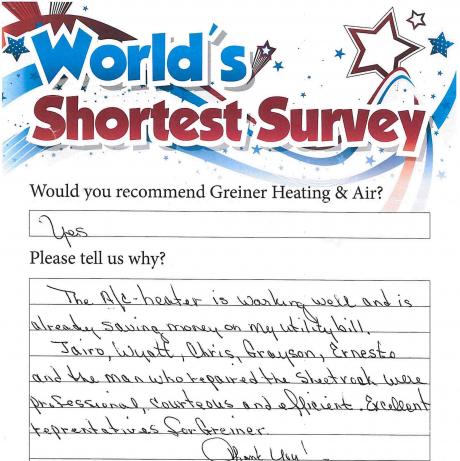 World's
Shortest Survey
Would you recommend Greiner Heating & Air?
Yes
Please tell us why?
The A/c-heater is working well and is
already saving money on my utility bill.
Jairo, Wyatt, Chris, Grayson, Ernesto
and the man who repaired the Sheetrock were
professional, courteous and efficient. Excellent
reprentatives for Greiner.
Thank You!